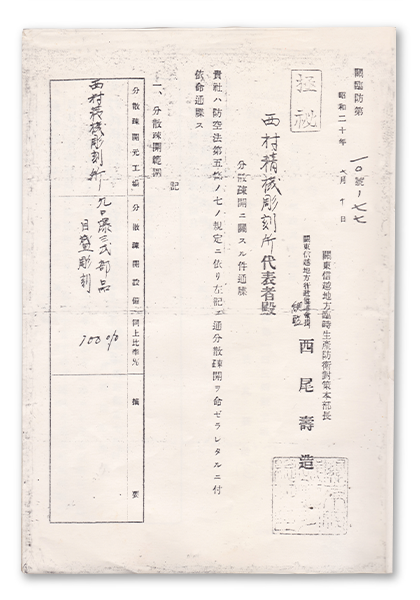 關臨防第一〇號ノ七七
昭和二十年七月十日
極祕
關東信越地方臨時生產防衛對策本部長
西尾壽造
西村精機彫刻所代表者殿
分散疎開ニ關スル件通牒
貴社ハ防空法第五條ノ七ノ規定ニ依リ左記ノ通分散疎開ヲ命ゼラレタルニ付
依命通牒ス
記
一、分散疎開範圍
分散疎開元工場 分散疎開設備 同上比率% 摘要
西村精機彫刻所 九八式部品 目盛彫刻 100%